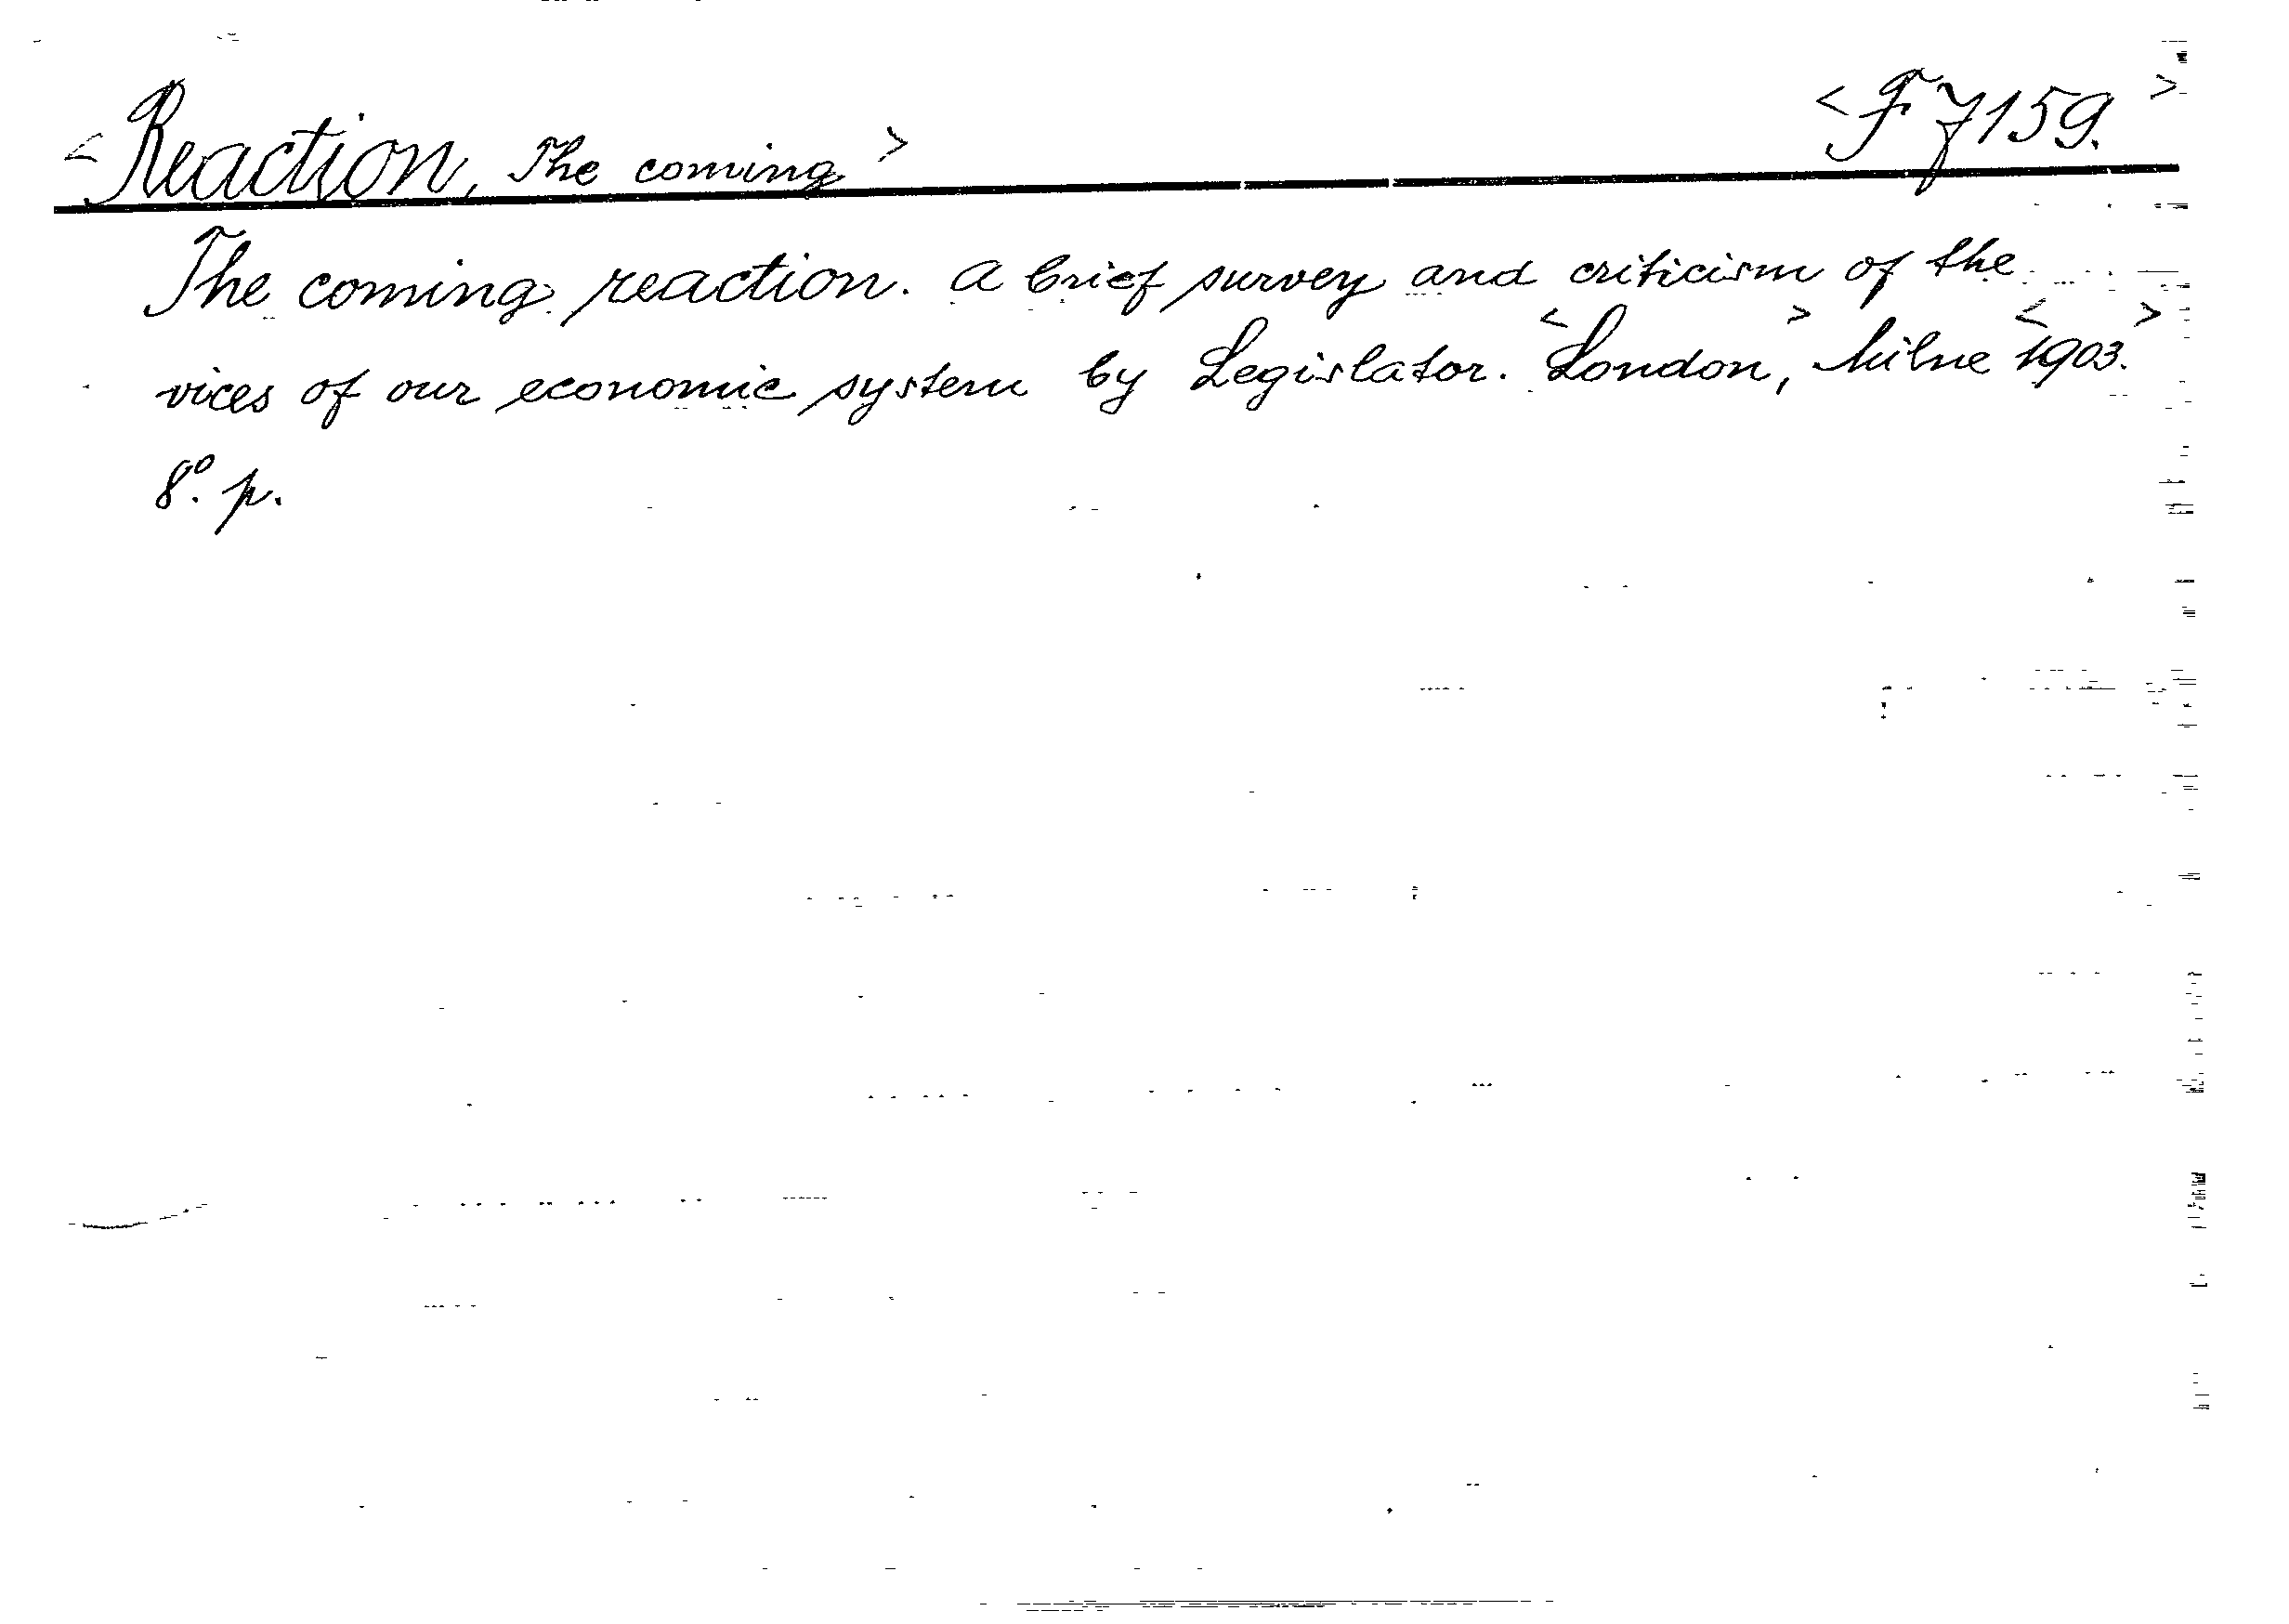 <Reaction, The coming> <F 7159.>
The coming reaction. A brief survey and criticism of the
vices of our economic system by Legislator. <London>, Milne <1903.>
8°. p.